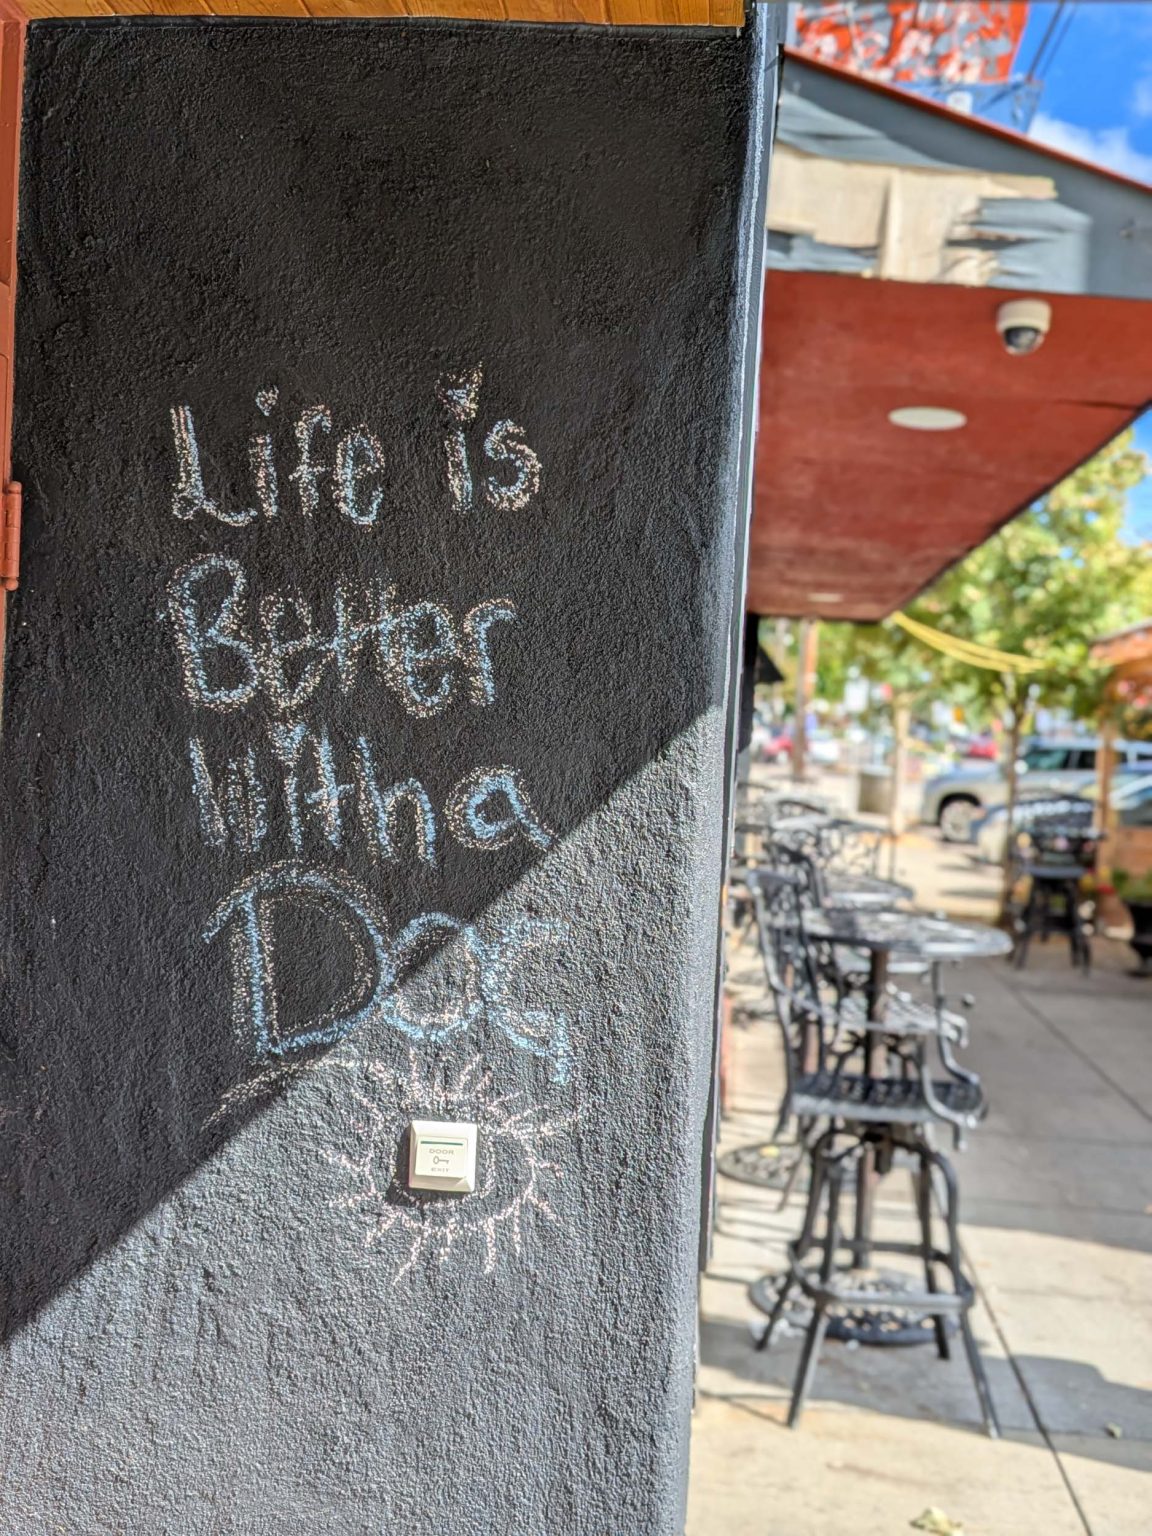 Life is
Better
with a
Dog
DOOR
EXIT